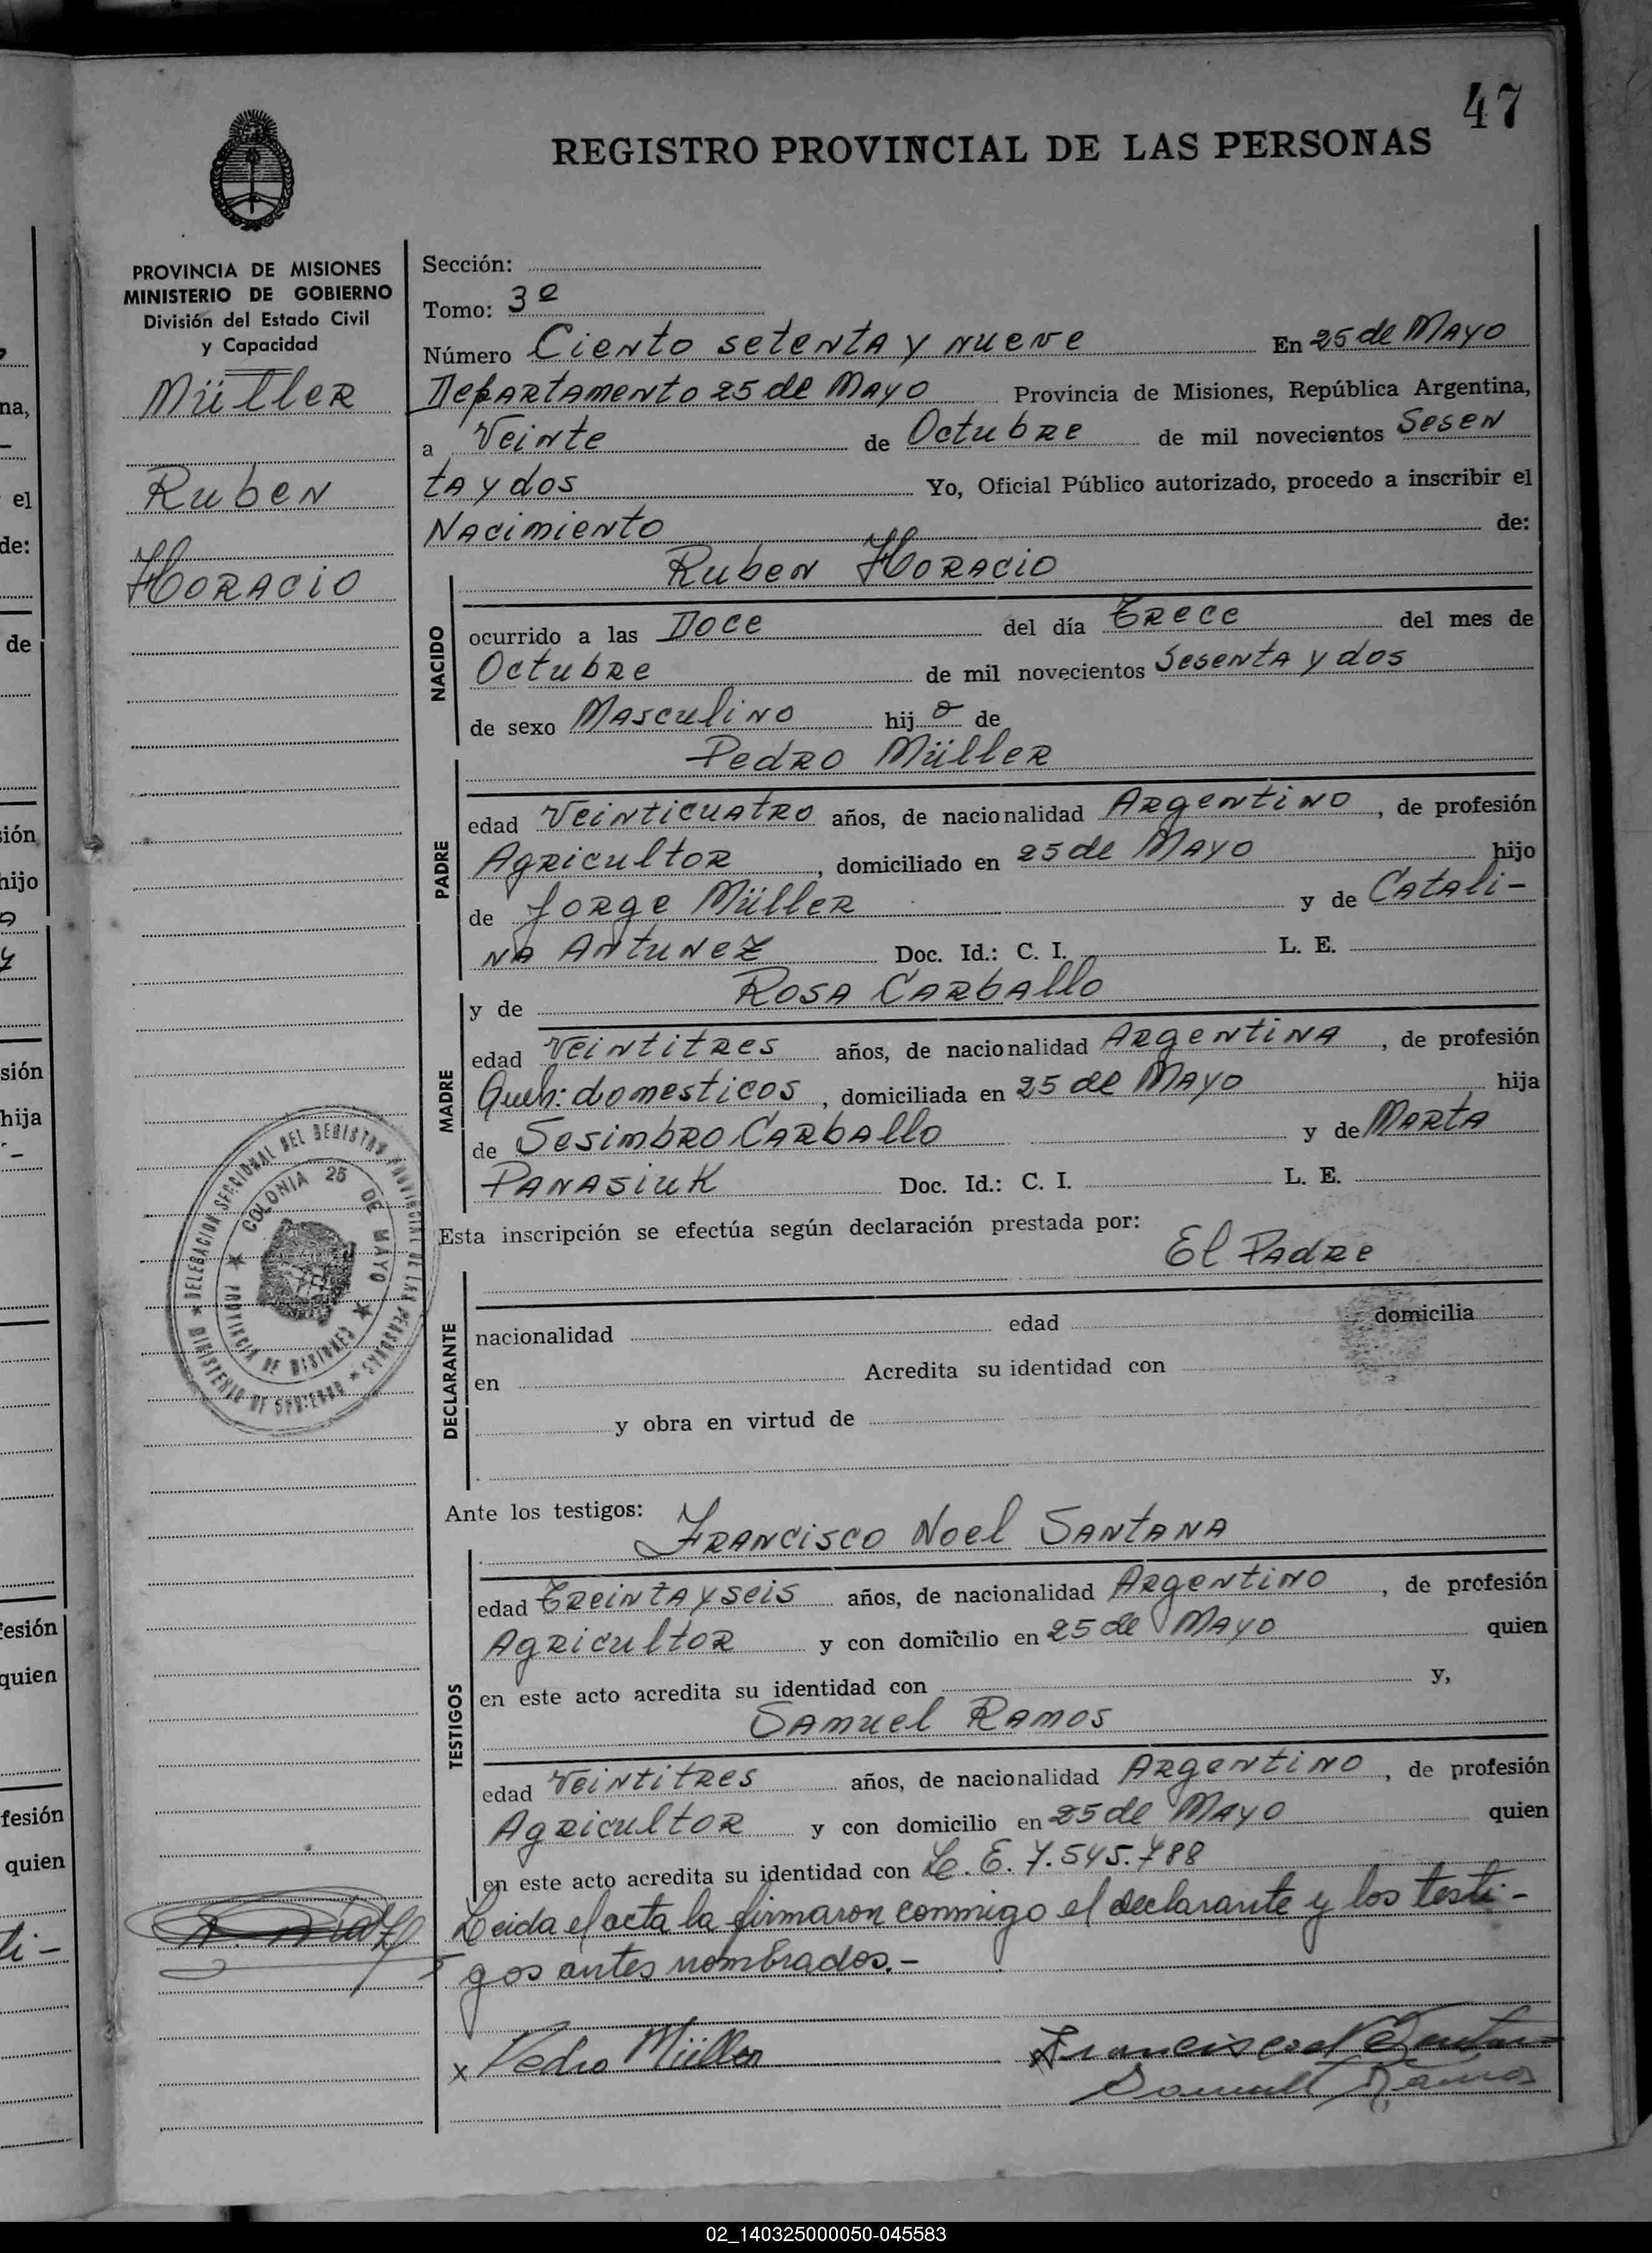 47
REGISTRO PROVINCIAL DE LAS PERSONAS
PROVINCIA DE MISIONES
MINISTERIO DE GOBIERNO
División del Estado Civil
y Capacidad
Müller
Ruben
Horacio
Sección:
Tomo: 3º
Número Ciento setenta y nueve En 25 de Mayo
Departamento 25 de Mayo Provincia de Misiones, República Argentina,
a Veinte de Octubre de mil novecientos Sesen
ta y dos Yo, Oficial Público autorizado, procedo a inscribir el
Nacimiento de:
Ruben Horacio
NACIDO
ocurrido a las Doce del día Trece del mes de
Octubre de mil novecientos Sesenta y dos
de sexo Masculino hijo de
Pedro Müller
PADRE
edad Veinticuatro años, de nacionalidad Argentino, de profesión
Agricultor, domiciliado en 25 de Mayo hijo
de Jorge Müller y de Catali-
na Antunez Doc. Id.: C. I. L. E.
MADRE
y de Rosa Carballo
edad Veintitres años, de nacionalidad Argentina, de profesión
Queh: domesticos, domiciliada en 25 de Mayo hija
de Sesimbro Carballo y de Marta
Panasiuk Doc. Id.: C. I. L. E.
Esta inscripción se efectúa según declaración prestada por:
El Padre
DECLARANTE
nacionalidad edad domicilia
en Acredita su identidad con
y obra en virtud de
Ante los testigos:
Francisco Noel Santana
TESTIGOS
edad Treinta y seis años, de nacionalidad Argentino, de profesión
Agricultor y con domicilio en 25 de Mayo quien
en este acto acredita su identidad con y,
Samuel Ramos
edad Veintitres años, de nacionalidad Argentino, de profesión
Agricultor y con domicilio en 25 de Mayo quien
en este acto acredita su identidad con L. E. 7.545.788
Leida el acta la firmaron conmigo el declarante y los testi-
gos antes nombrados.-
x Pedro Müller
Samuel Ramos
DELEGACION SECCIONAL DEL REGISTRO PROVINCIAL DE LAS PERSONAS
MINISTERIO DE GOBIERNO
COLONIA 25 DE MAYO
PROVINCIA DE MISIONES
na,
el
de:
de
sión
hijo
sión
hija
fesión
quien
fesión
quien
ti-
02_140325000050-045583